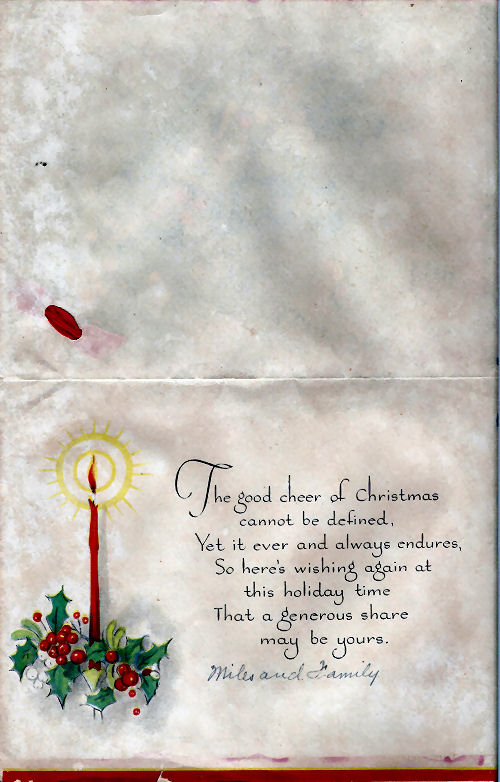 The good cheer of Christmas
cannot be defined,
Yet it ever and always endures,
So here's wishing again at
this holiday time
That a generous share
may be yours.
Miles and Family